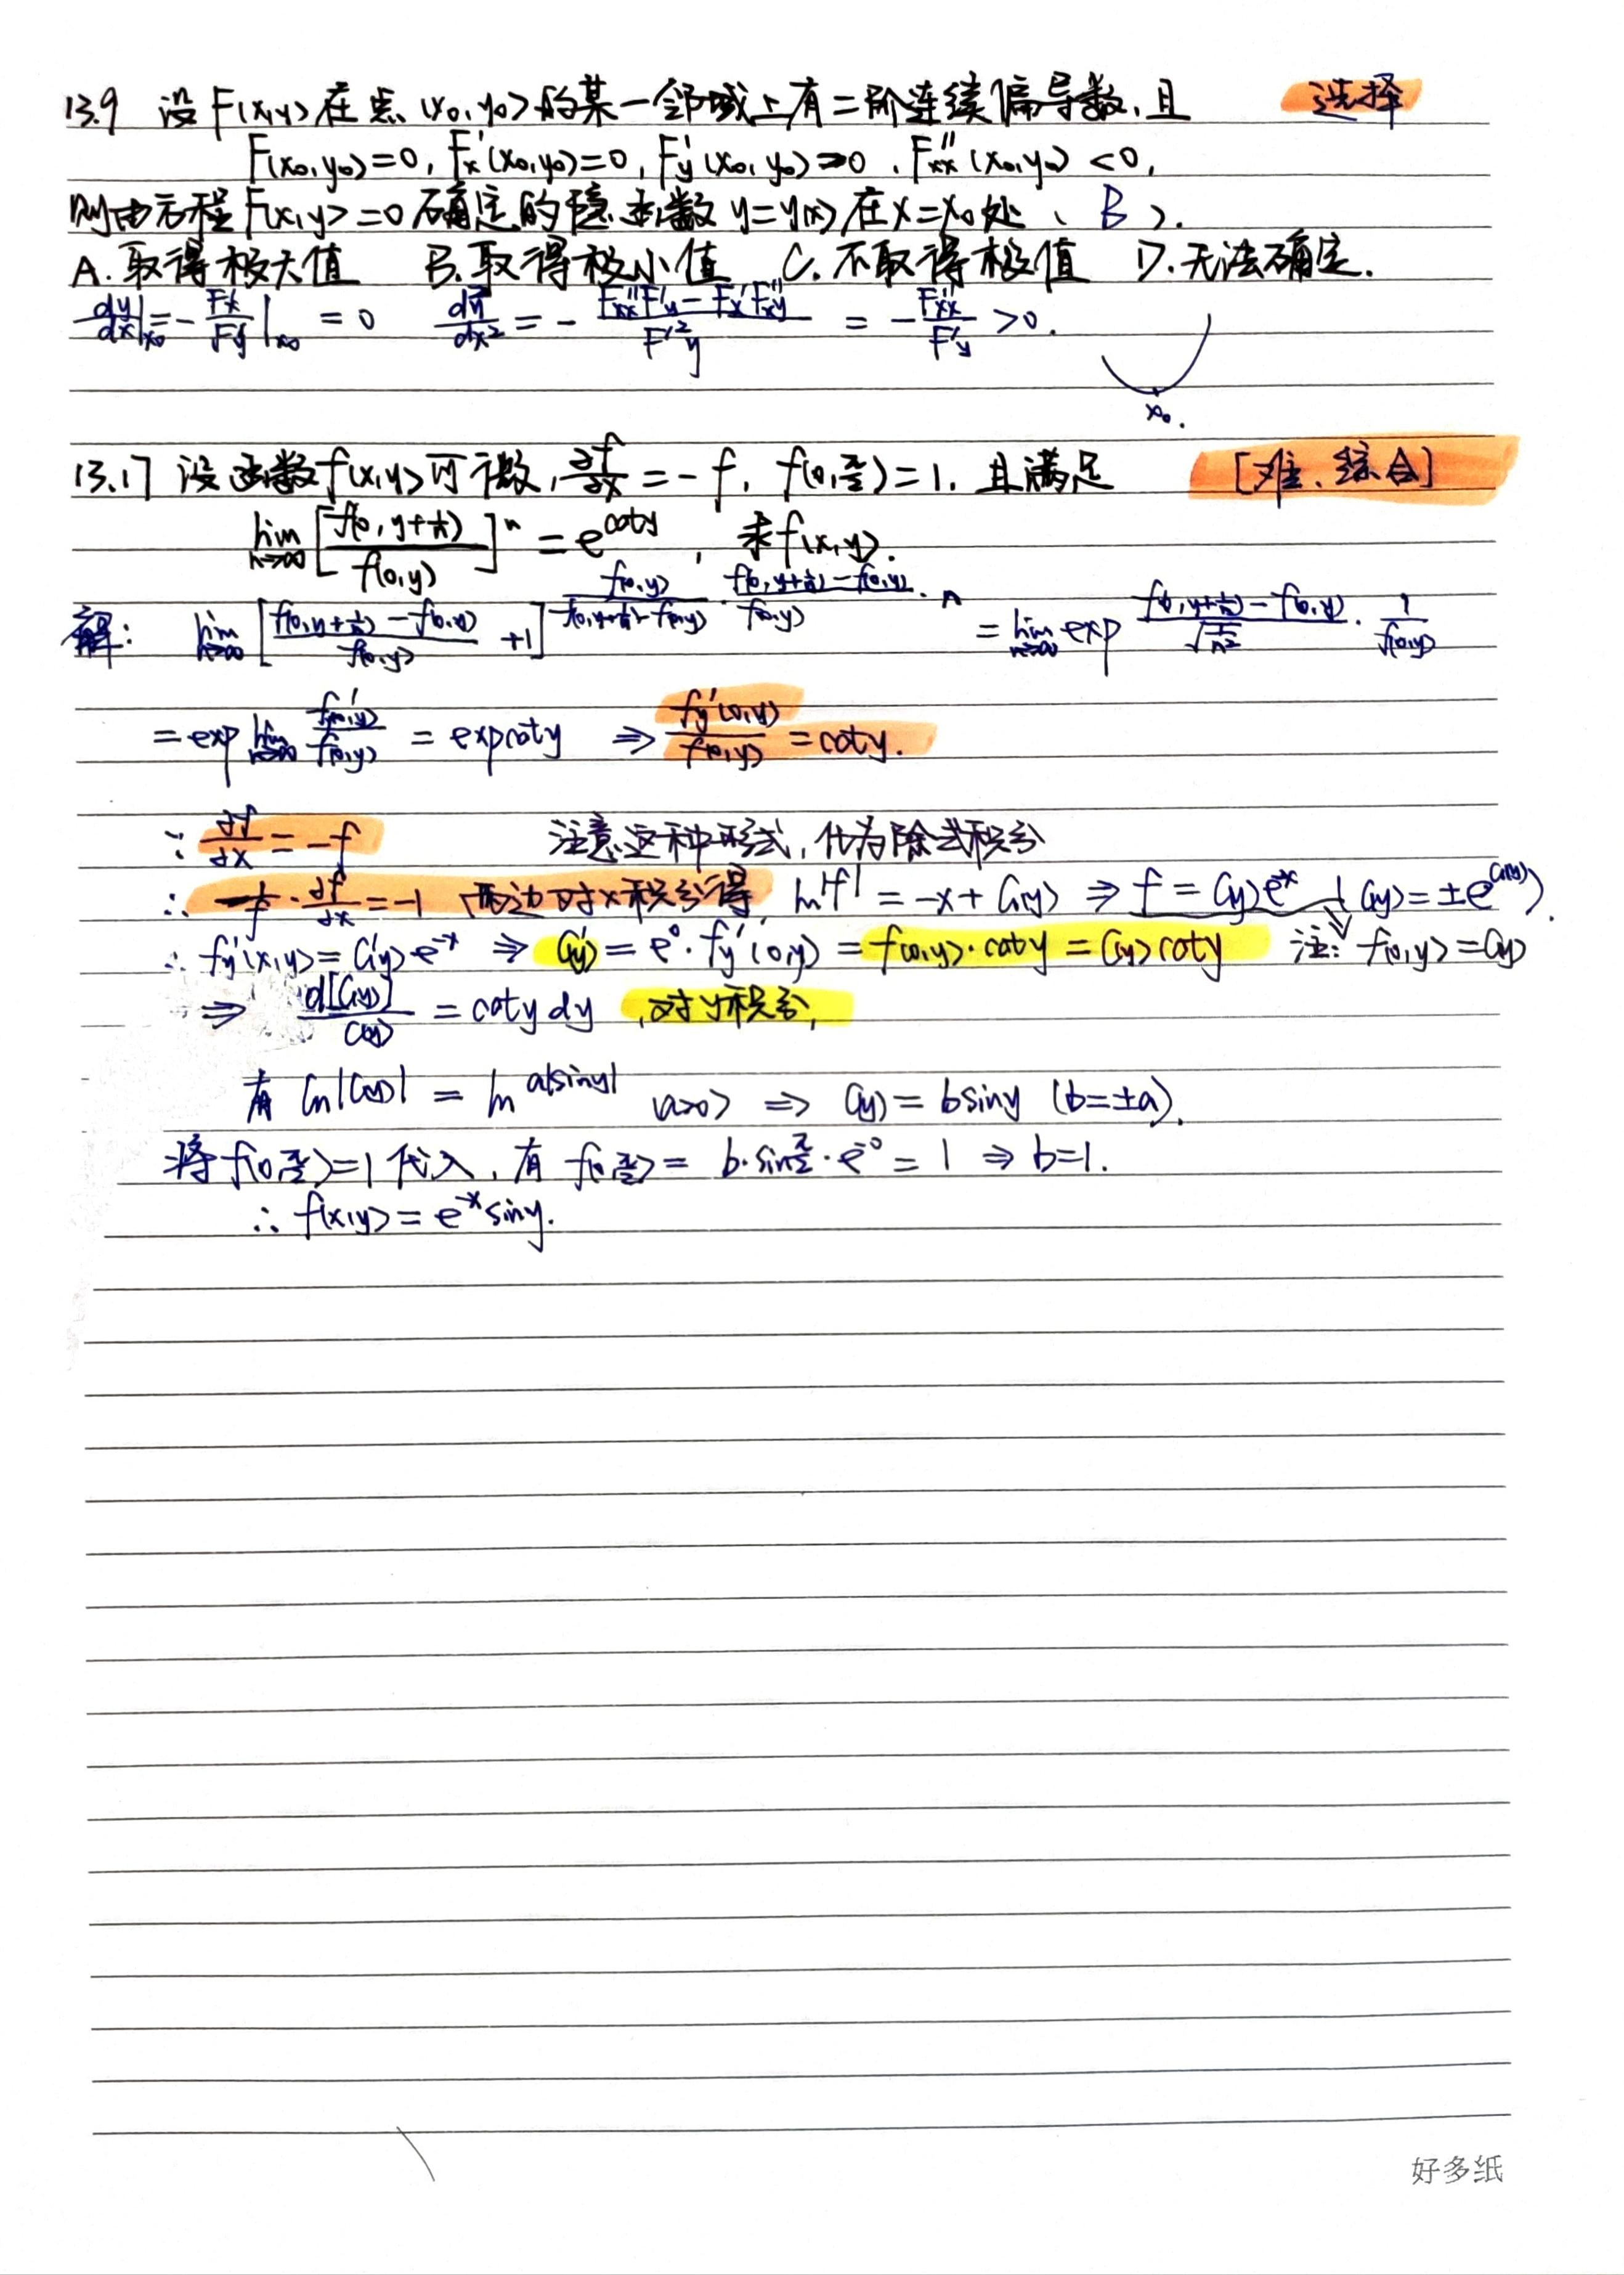 13.9 设F(x,y)在点(x₀,y₀)的某一邻域上有二阶连续偏导数,且 选择
F(x₀,y₀)=0, F'x(x₀,y₀)=0, F'y(x₀,y₀)>0, F''xx(x₀,y₀)<0,
则由方程F(x,y)=0确定的隐函数y=y(x)在x=x₀处( B ).
A.取得极大值 B.取得极小值 C.不取得极值 D.无法确定.
dy/dx|x₀ = -F'x/F'y|x₀ = 0 d²y/dx² = -(F''xxF'y - F'xF''xy)/F'²y = -F''xx/F'y > 0.
x₀.
13.17 设函数f(x,y)可微, ∂f/∂x = -f, f(0,π/2)=1, 且满足 [难、综合]
lim n→∞ [f(0,y+1/n)/f(0,y)]ⁿ = e^coty, 求f(x,y).
解: lim n→∞ [(f(0,y+1/n)-f(0,y))/f(0,y) +1]^(f(0,y)/(f(0,y+1/n)-f(0,y)) · (f(0,y+1/n)-f(0,y))/f(0,y) · n) = lim n→∞ exp (f(0,y+1/n)-f(0,y))/√(1/n²) · 1/f(0,y)
= exp lim n→∞ f'(0,y)/f(0,y) = exp coty ⇒ f'y(0,y)/f(0,y) = coty.
∵ ∂f/∂x = -f 注意这种形式,化为除式积分
∴ 1/f · ∂f/∂x = -1 两边对x积分得, ln|f| = -x + C₁(y) ⇒ f = C(y)e⁻ˣ (C(y)=±e^C₁(y)).
∴ f'y(x,y) = C'(y)e⁻ˣ ⇒ C'(y) = e⁰·f'y(0,y) = f(0,y)·coty = C(y)coty 注: f(0,y)=C(y)
⇒ d[C(y)]/C(y) = coty dy ,对y积分,
有 ln|C(y)| = ln a|siny| (a>0) ⇒ C(y) = bsiny (b=±a).
将f(0,π/2)=1代入,有 f(0,π/2) = b·sinπ/2·e⁻⁰ = 1 ⇒ b=1.
∴ f(x,y) = e⁻ˣsiny.
好多纸